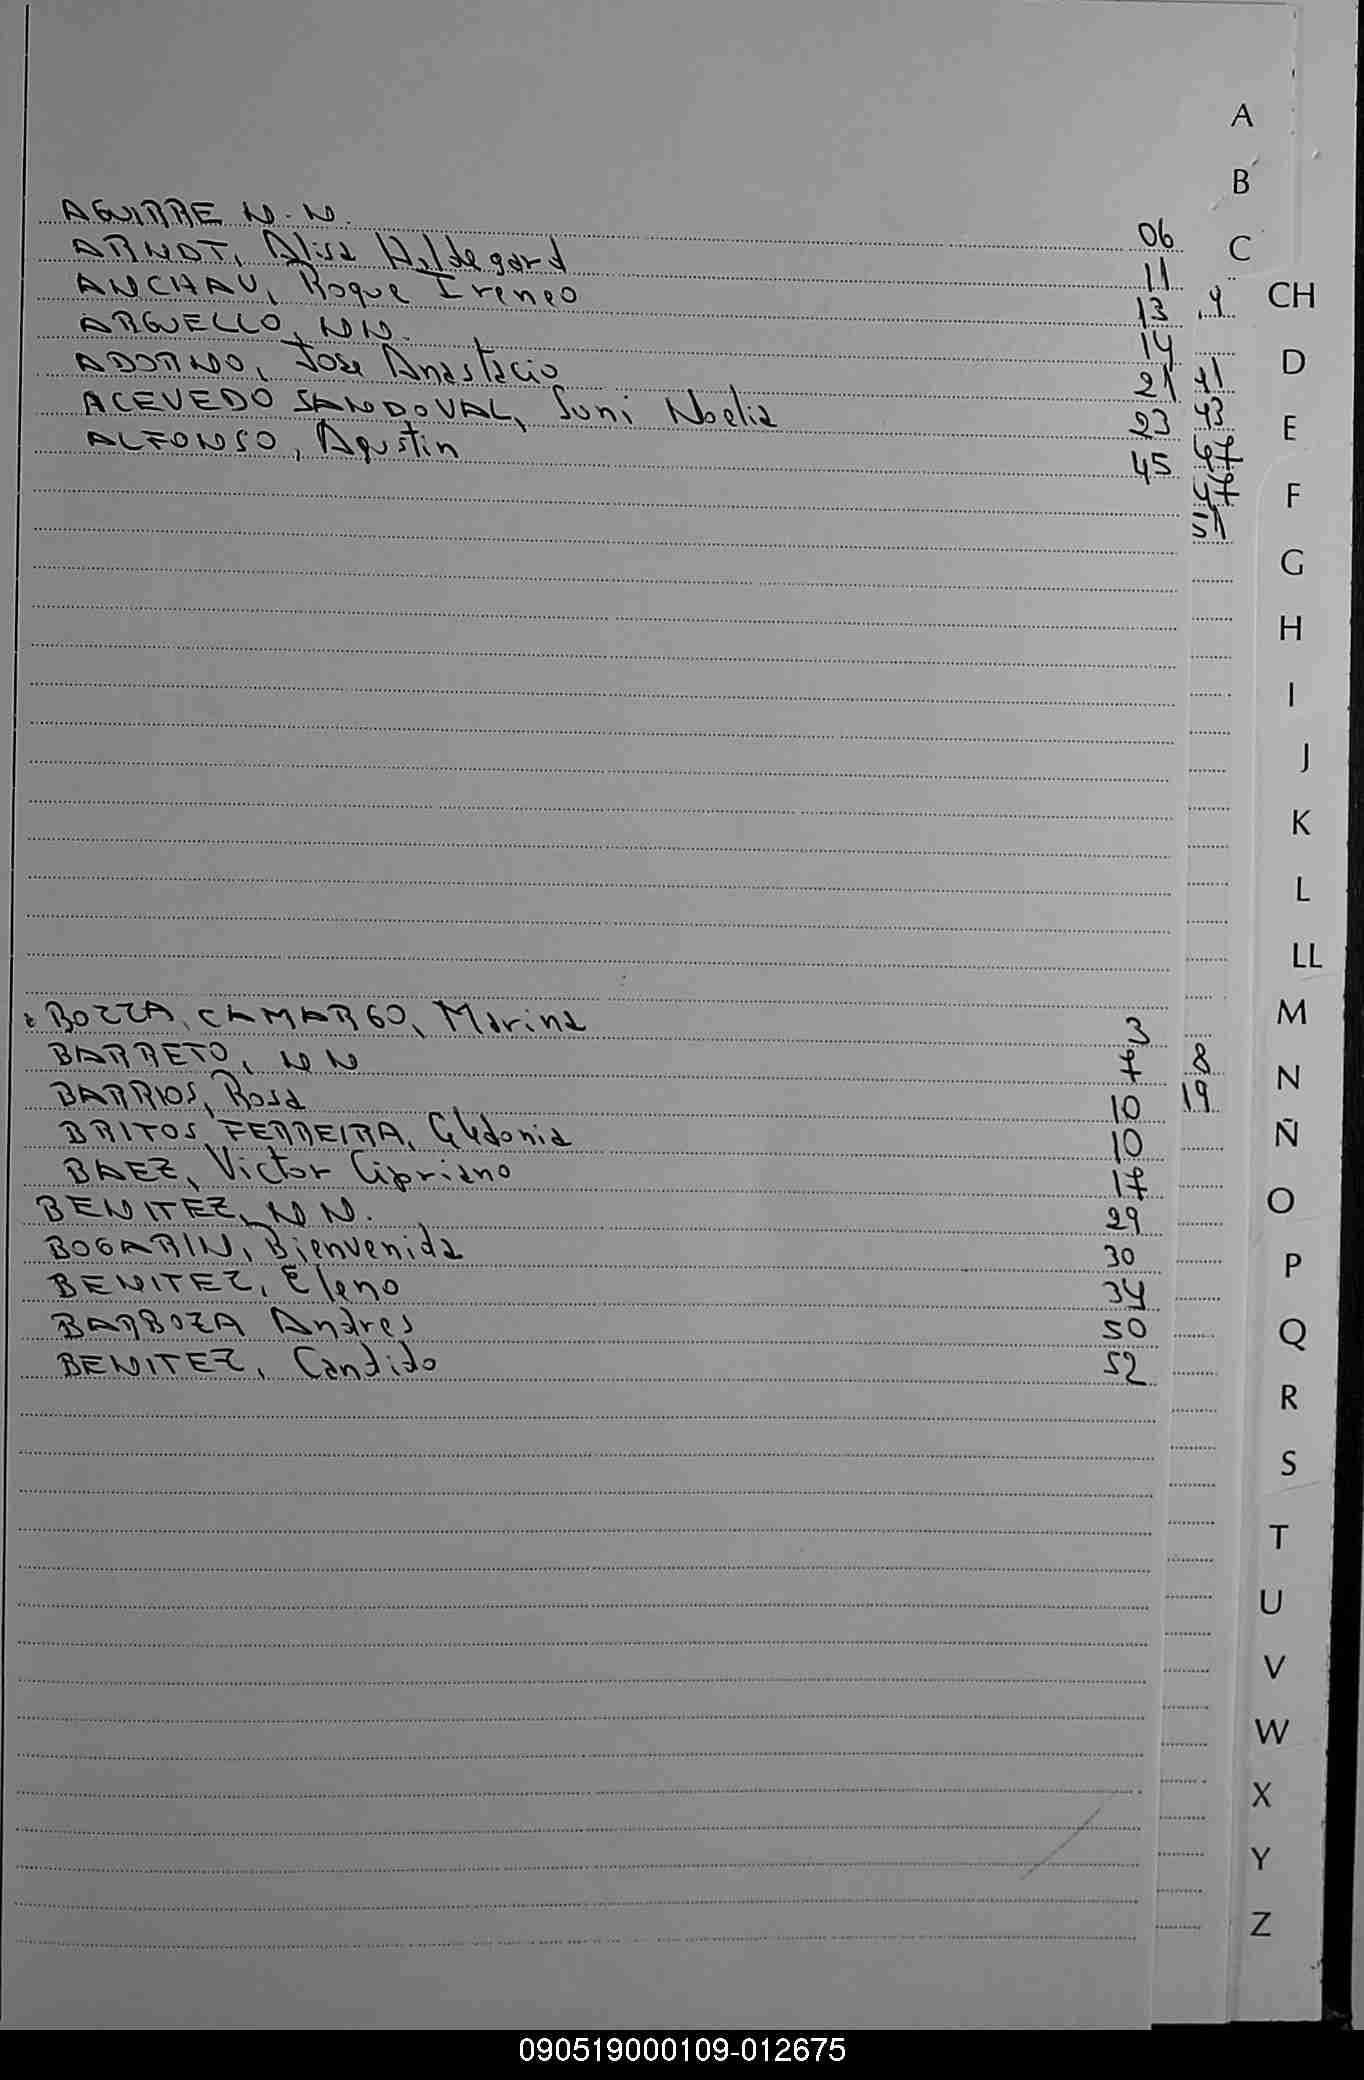 A
B
AGUIRRE N.N. 06
C
ARNDT, Alisa Hildegard 11
ANCHAU, Roque Ireneo 13 4 CH
ARGUELLO, NN. 14
D
ADORNO, Jose Anastacio 21 41
ACEVEDO SANDOVAL, Suni Noelia 23 43
E
ALFONSO, Agustin 45
F
G
H
I
J
K
L
LL
BOZZA, CAMARGO, Marina 3
M
BARRETO, NN 7 8
N
BARRIOS, Rosa 10 19
BRITOS, FERREIRA, 10
Ñ
BAEZ, Victor Cipriano 17
O
BENITEZ, NN. 29
BOGARIN, Bienvenida 30
P
BENITEZ, Eleno 34
BARBOZA Andres 50
Q
BENITEZ, Candido 52
R
S
T
U
V
W
X
Y
Z
090519000109-012675